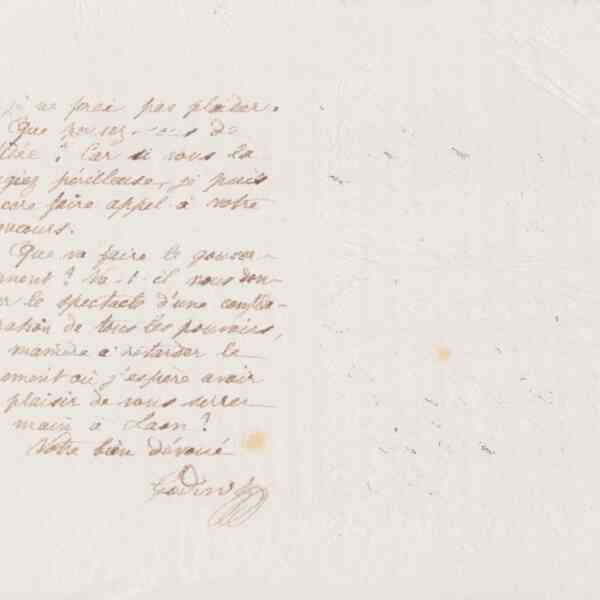 je ne ferai pas plaider.
Que pensez-vous de
idée ? Car si vous la
giez périlleuse, je puis
core faire appel à votre
ncours.
Que va faire le gouver-
nement ? Va-t-il nous don-
er le spectacle d'une conflag-
ration de tous les pouvoirs,
manière à retarder le
ement où j'espère avoir
plaisir de vous serrer
main à Laon ?
Votre bien dévoué
Godin